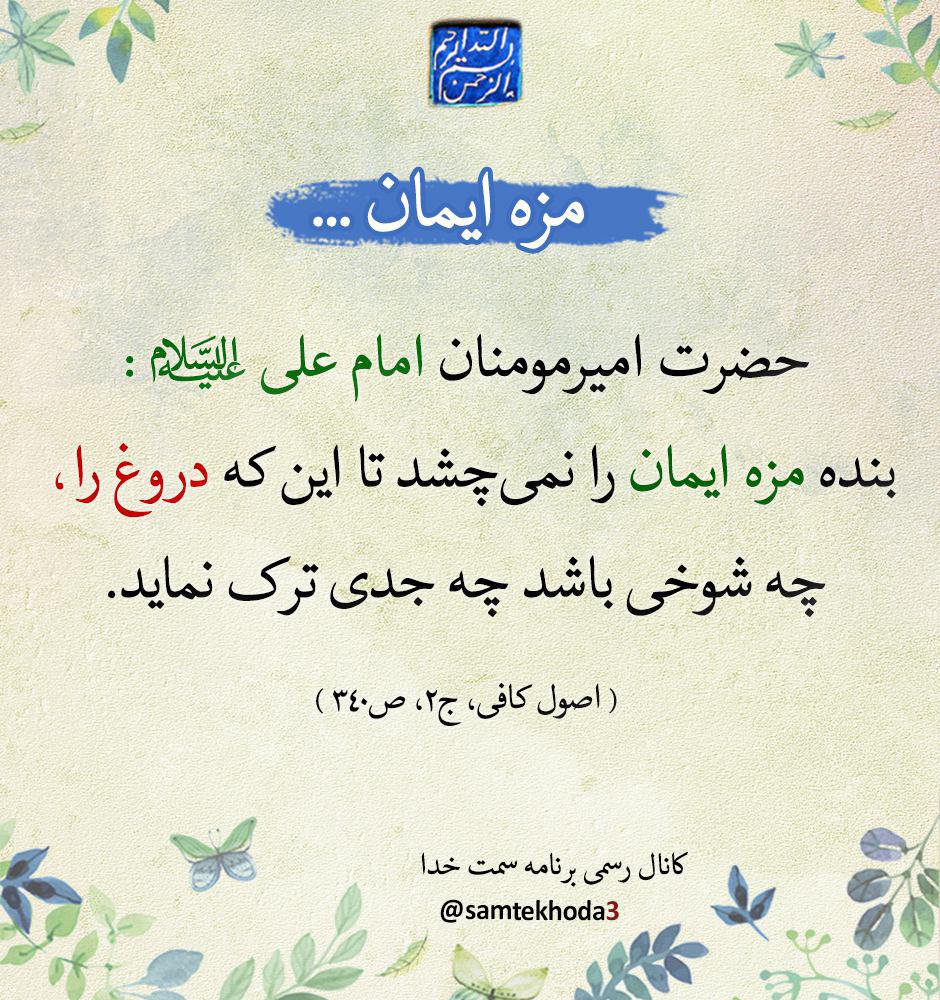 بسم الله الرحمن الرحیم
مزه ایمان ...
حضرت امیرمومنان امام علی علیه‌السلام :
بنده مزه ایمان را نمی‌چشد تا این که دروغ را،
چه شوخی باشد چه جدی ترک نماید.
( اصول کافی، ج۲، ص۳٤۰ )
کانال رسمی برنامه سمت خدا
@samtekhoda3